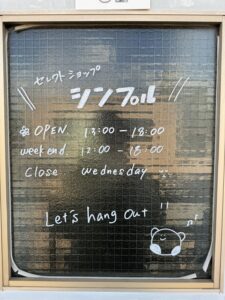 セレクトショップ
シンプル
※ OPEN 13:00 - 18:00
weekend 12:00 - 18:00
Close wednesday
Let's hang out !!